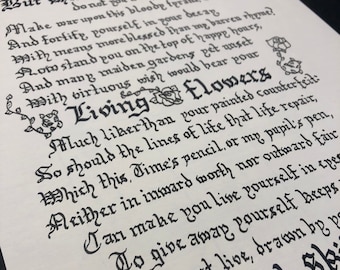 But wh
do not you a
Make war upon this bloody tyran
And fortify yourself in your decay
With means more blessed than my barren rhyme?
Now stand you on the top of happy hours,
And many maiden gardens yet unset
With virtuous wish would bear your
Living flowers
Much liker than your painted counterfeit:
So should the lines of life that life repair,
Which this, Time's pencil, or my pupil's pen,
Neither in inward worth nor outward fair
Can make you live yourself in eyes
To give away yourself keeps
t live, drawn by yo
Ski